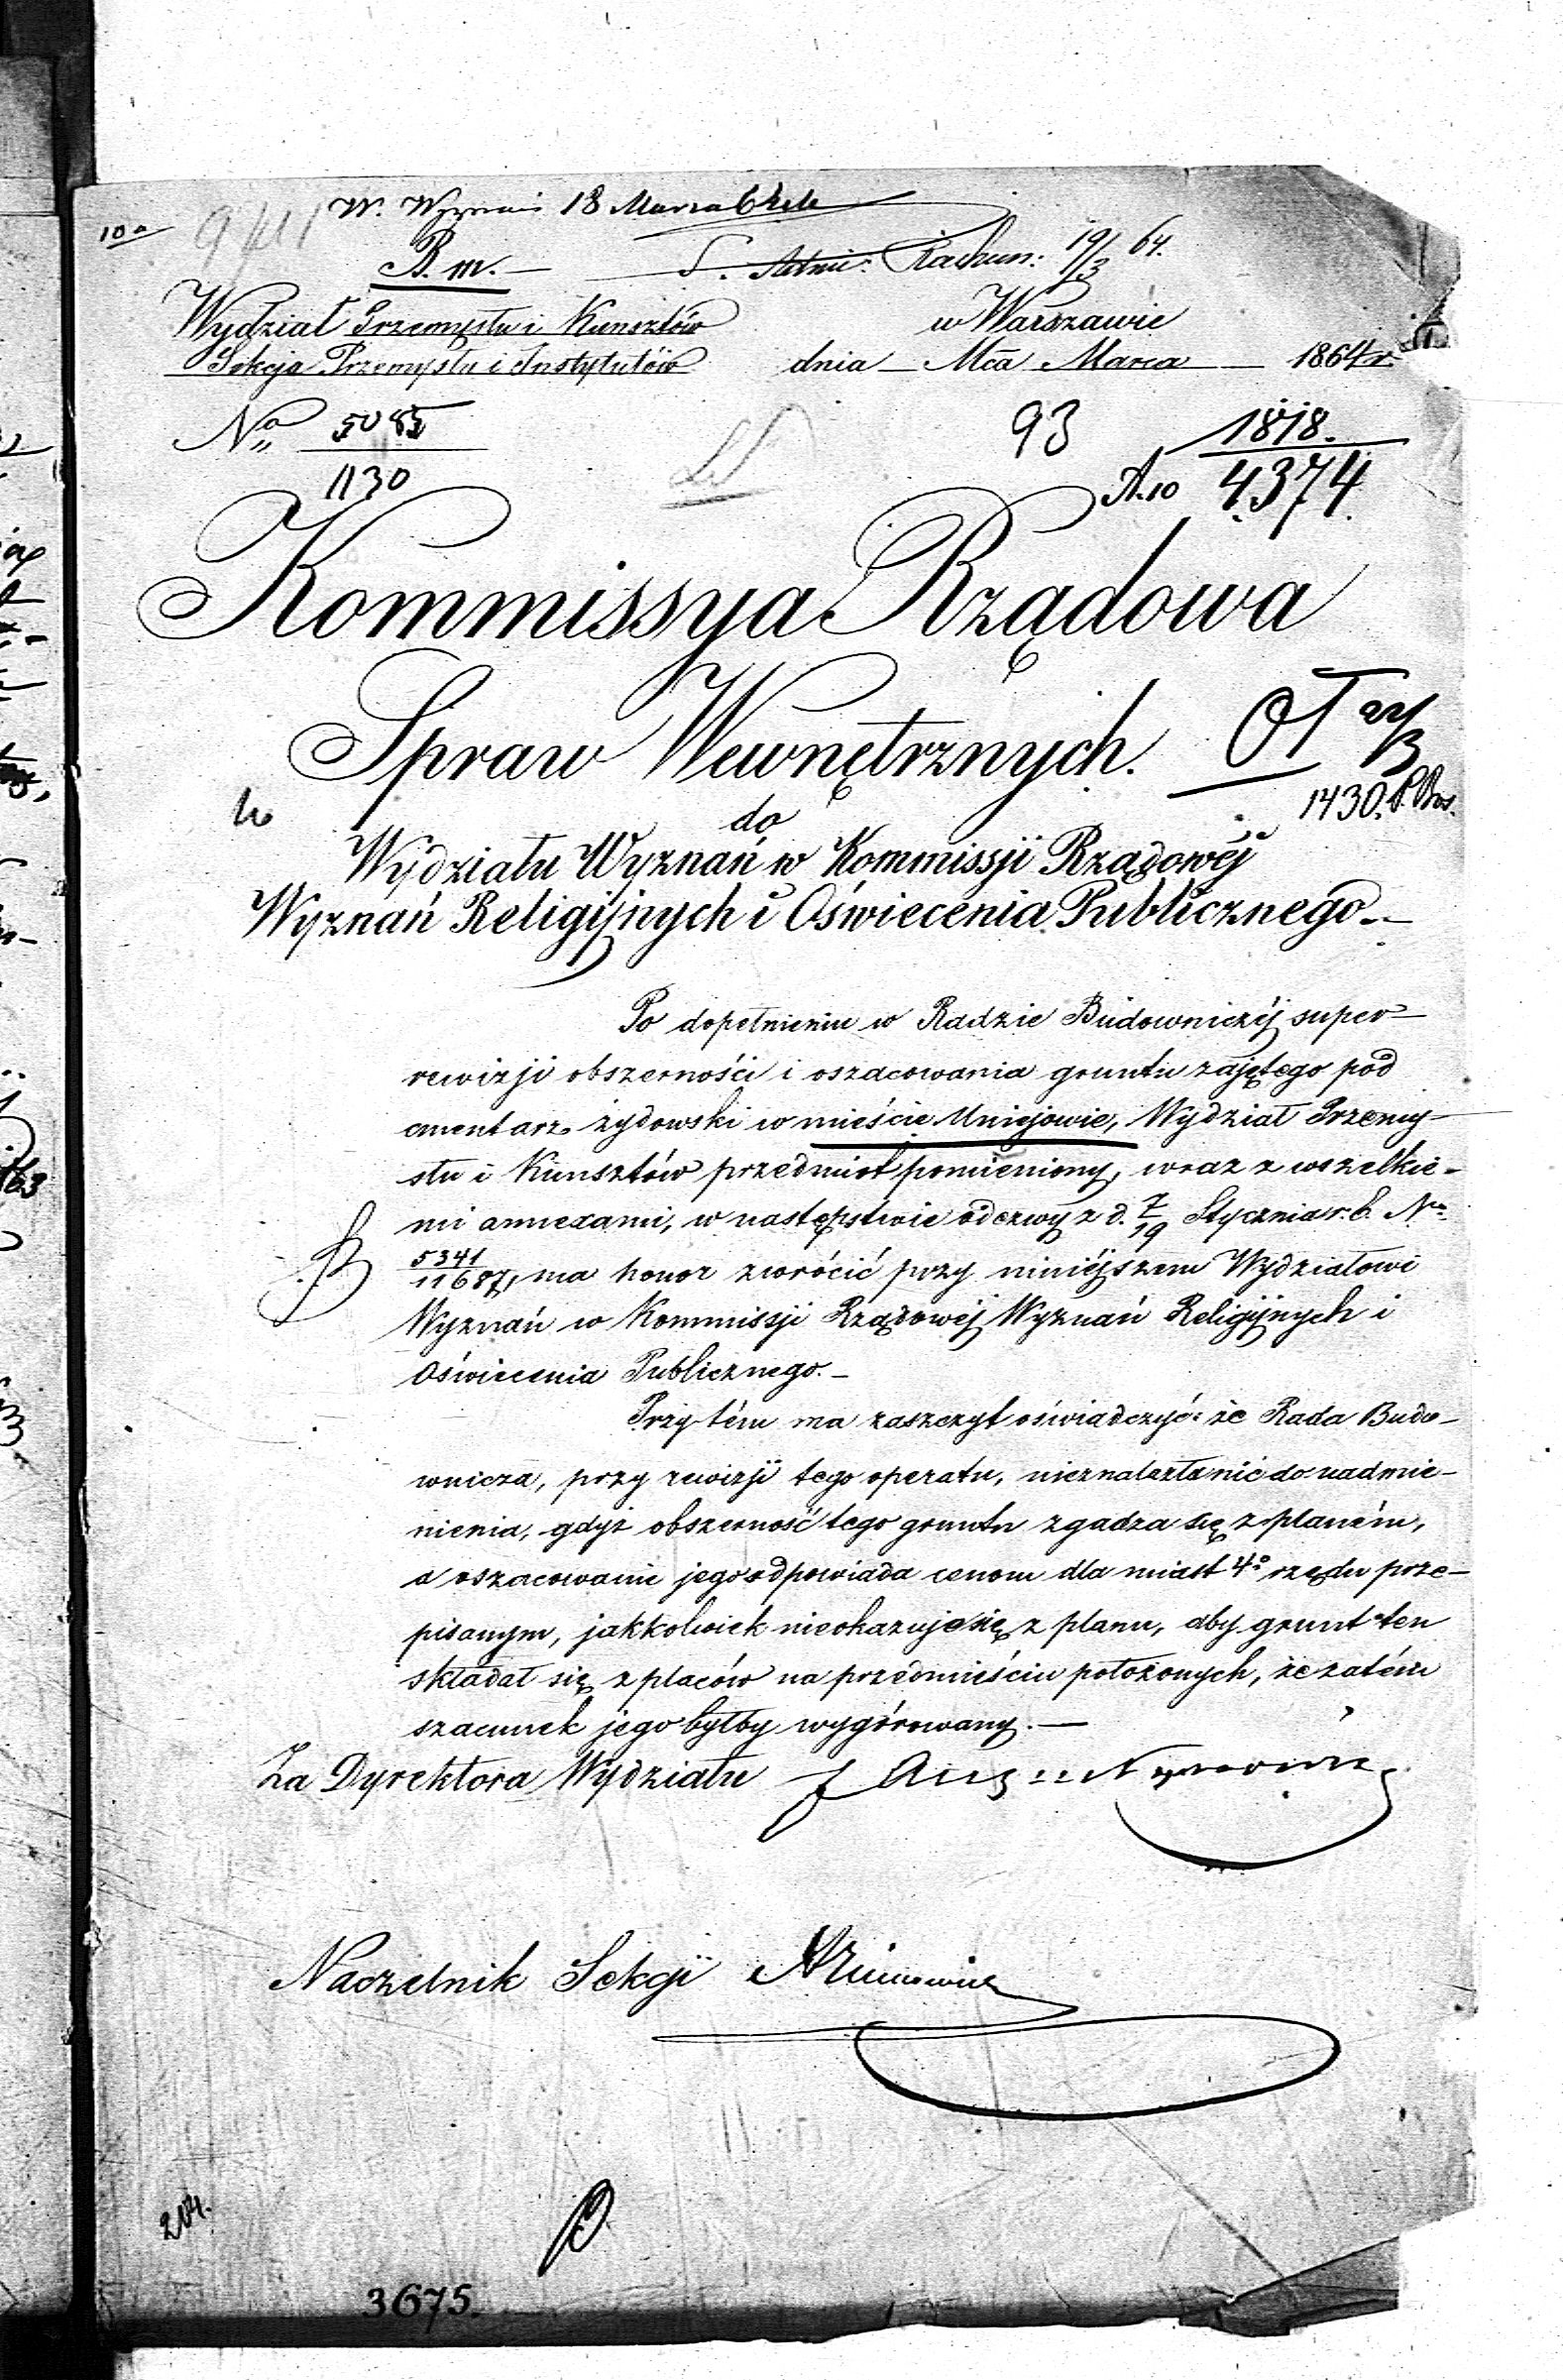 W. Wyznań 18 Marca 64
10a
B. m.
Rachun: 19/3 64.
Wydział Przemysłu i Kunsztów
w Warszawie
Sekcja Przemysłu i Instytutów
dnia — Mca Marca — 1864 r.
No 5085
1130
93
1818.
A.10 4374
Kommissya Rządowa
Spraw Wewnętrznych.
1430.
do
Wydziału Wyznań w Kommissji Rządowéj
Wyznań Religijnych i Oświecenia Publicznego.—
Po dopełnieniu w Radzie Budowniczéj super-
rewizji obszerności i oszacowania gruntu zajętego pod
cmentarz żydowski w mieście Uniejowie, Wydział Przemy-
słu i Kunsztów przedmiot pomieniony, wraz z wszelkie-
mi annexami, w następstwie odezwy z d. 7/19 Stycznia r. b. No
5341/11687, ma honor zwrócić przy niniéjszem Wydziałowi
Wyznań w Kommissji Rządowéj Wyznań Religijnych i
Oświecenia Publicznego.—
Przy tém ma zaszczyt oświadczyć: że Rada Budo-
wnicza, przy rewizji tego operatu, nieznalazła nić do nadmie-
nienia, gdyż obszerność tego gruntu zgadza się z planém,
a oszacowanie jego odpowiada cenom dla miast 4o rzędu prze-
pisanym, jakkolwiek nieokazuje się z planu, aby grunt ten
składał się z placów na przedmieściu położonych, że zatém
szacunek jego byłby wygórowany.—
Za Dyrektora Wydziału
Naczelnik Sekcji
204.
3675